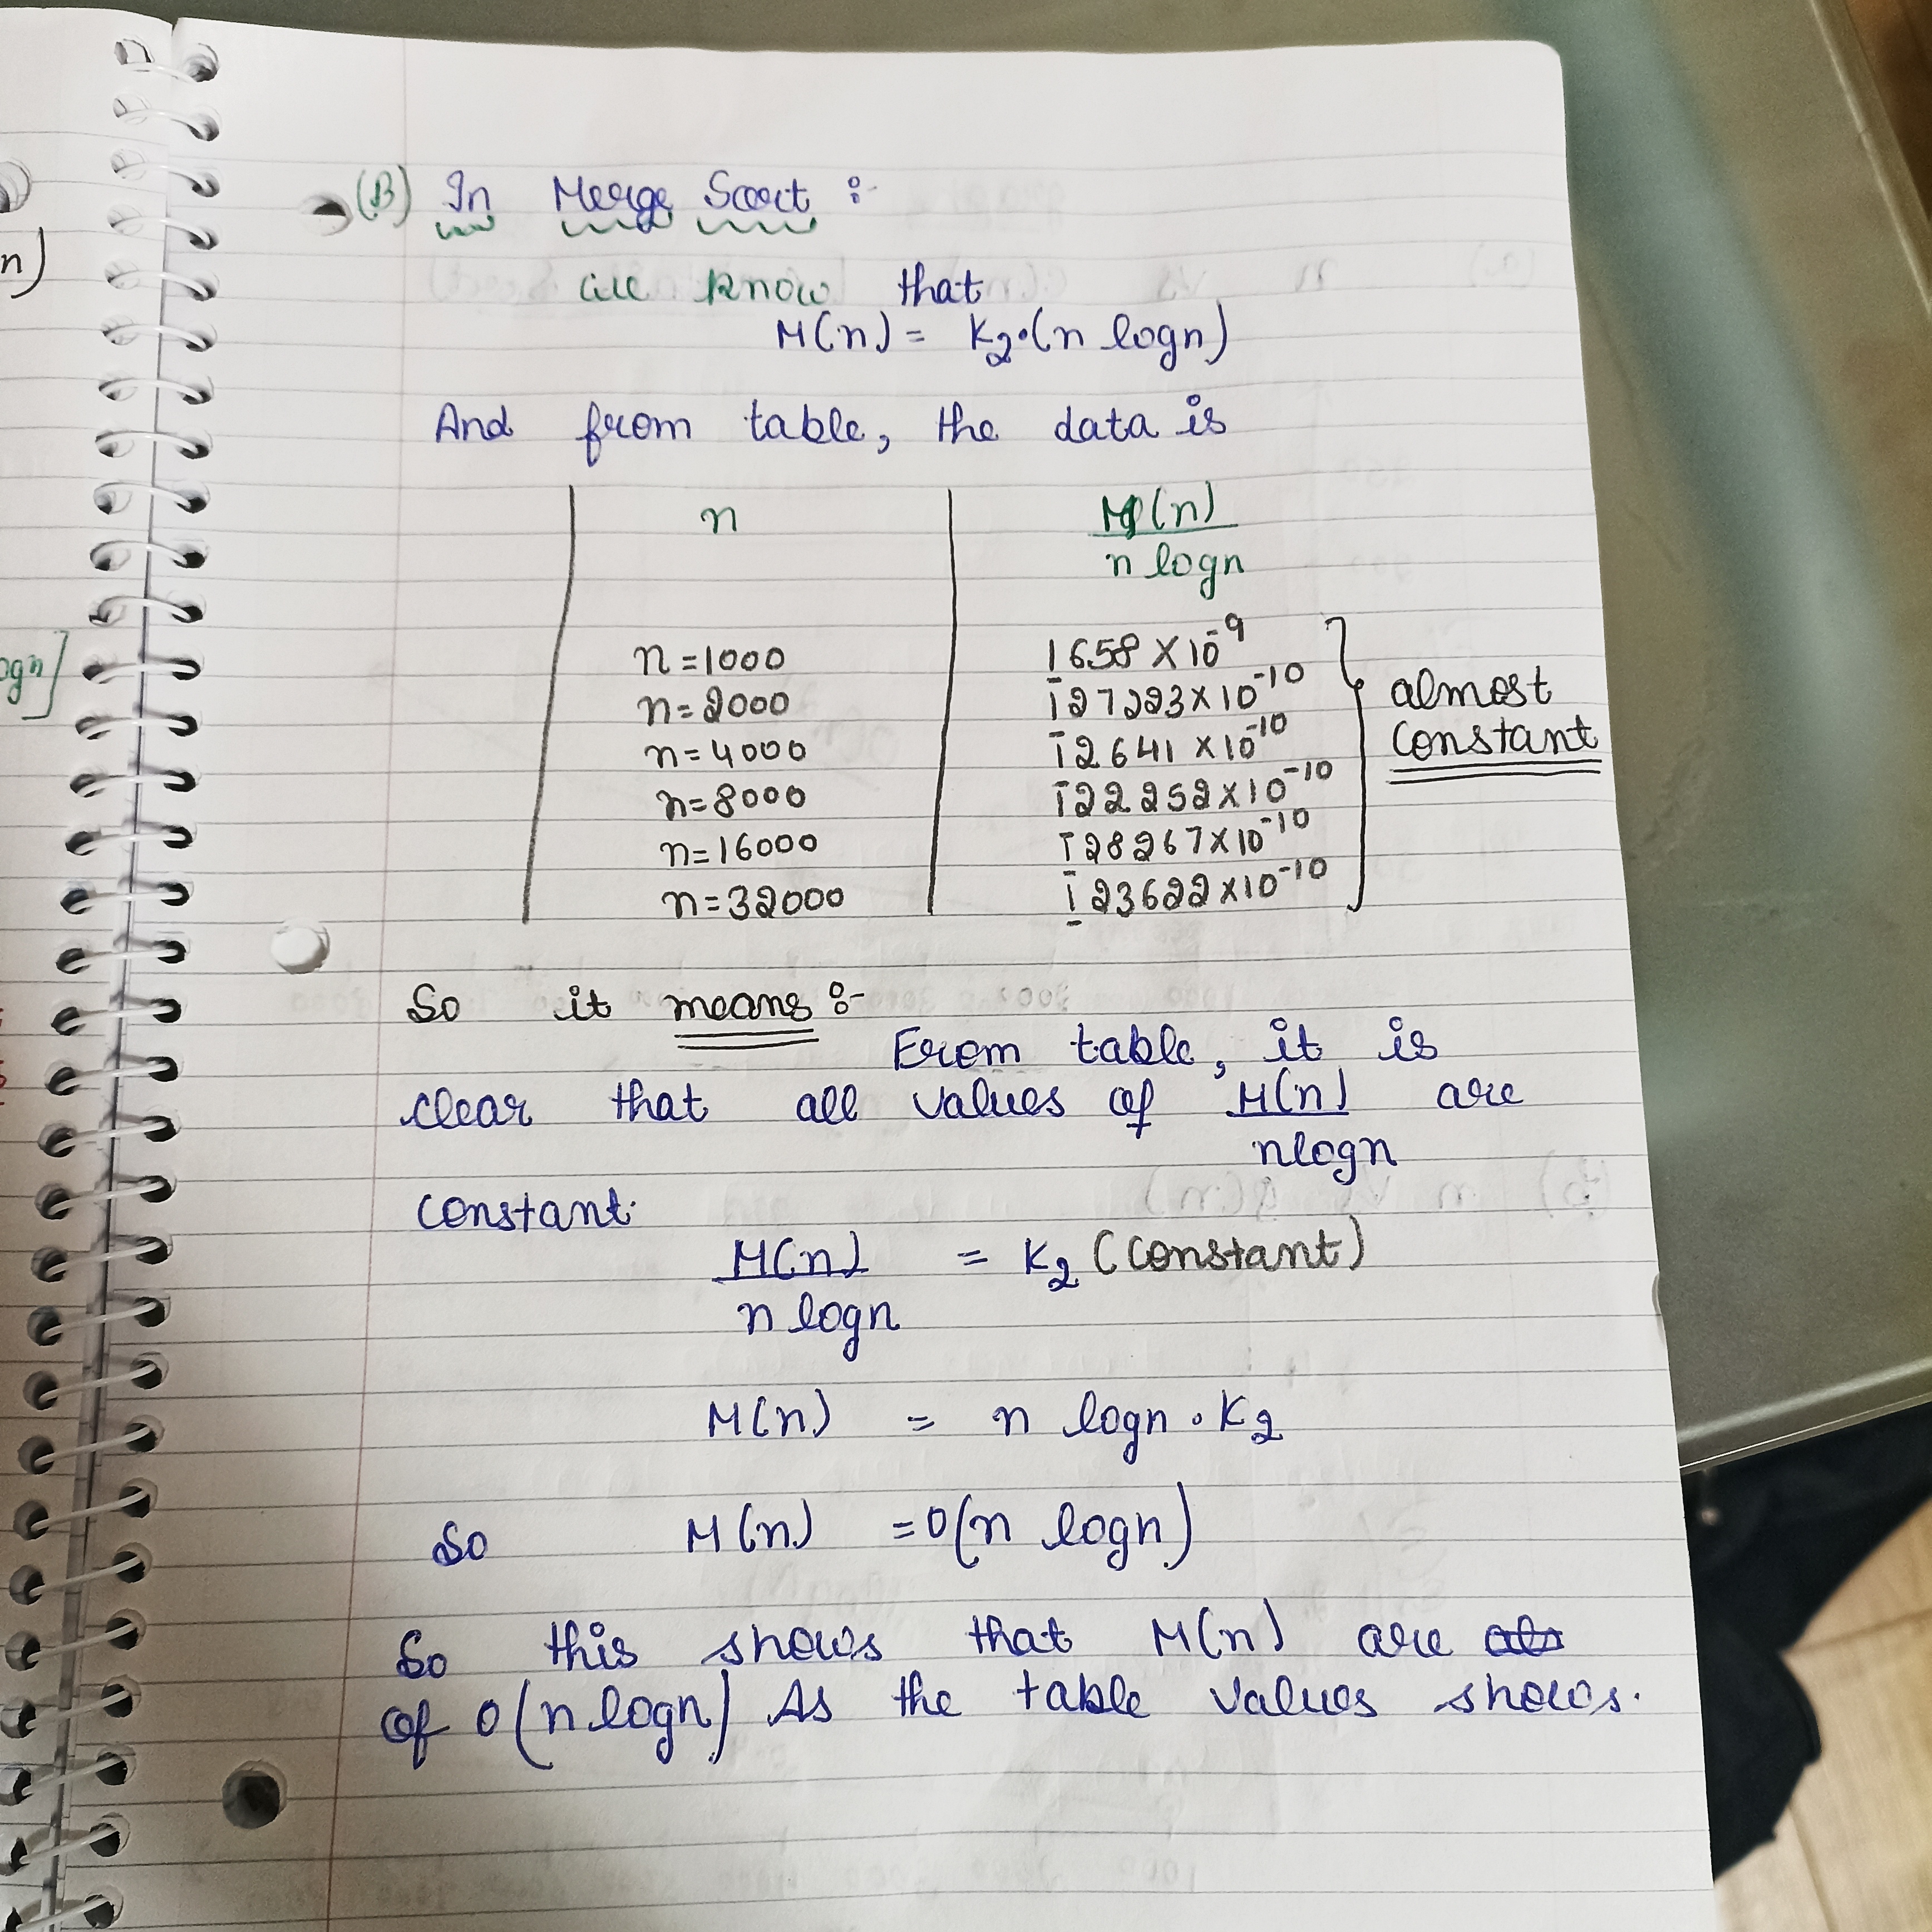 n)
ogn]
(B) In Merge Sort :-
we know that
M(n) = K2·(n logn)
And from table, the data is
n M(n)
n logn
n=1000 1658 × 10^-9
n=2000 127223×10^-10
n=4000 12641 ×10^-10
n=8000 122252×10^-10
n=16000 128267×10^-10
n=32000 123622×10^-10
almost
constant
So it means :-
From table, it is
clear that all values of M(n) are
nlogn
constant.
M(n) = K2 (constant)
n logn
M(n) = n logn · K2
So M(n) = O(n logn)
So this shows that M(n) are
of O(n logn) As the table values shows.